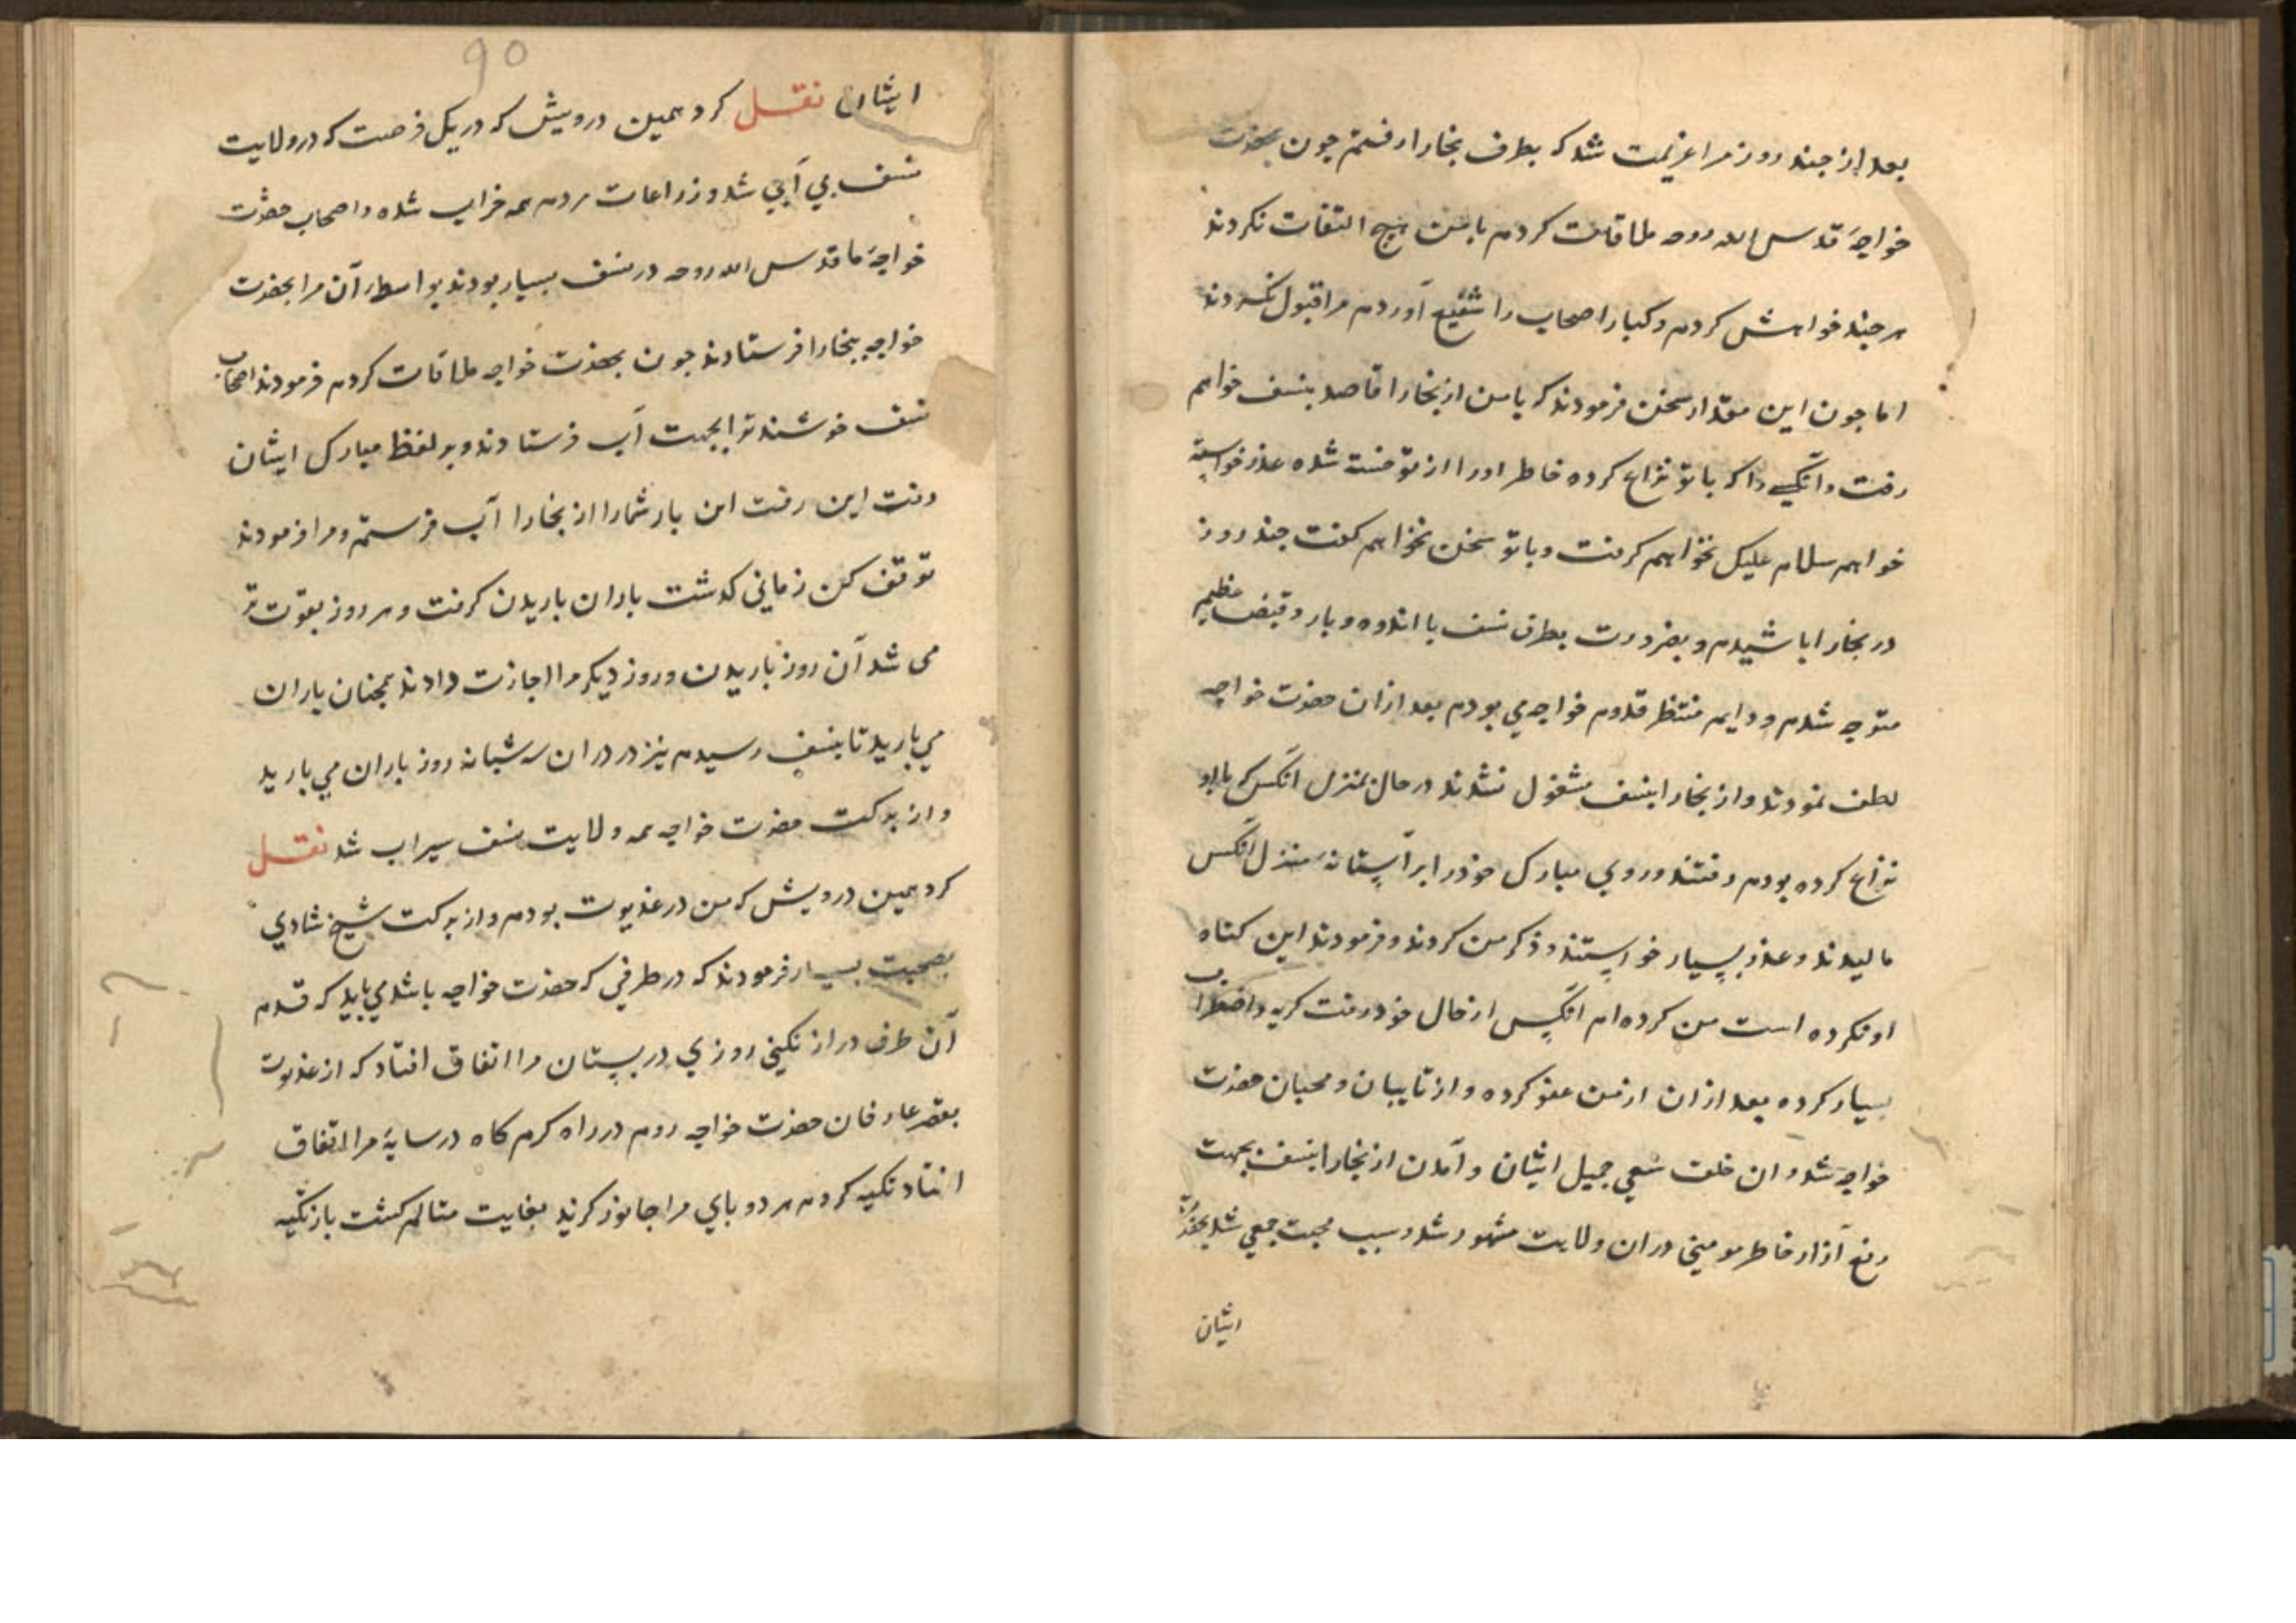 بعد از جند روز مرا عزیمت شد که بطرف بخارا رفتم جون بحضرت
خواجهٔ قدس الله روحه ملاقات کردم با من هیج التفات نکردند
هرجند خواهش کردم و کبار اصحاب را شفیع آوردم مرا قبول نکردند
اما جون این مقدار سخن فرمودند که با من از بخارا قاصد بنسف خواهم
رفت و انکسی را که با تو نزاع کرده خاطر او را از تو خسته شده عذر خواسته
خواهم سلام علیک نخواهم کرفت و با تو سخن نخواهم کفت جند روز
در بخارا باشیدم و بضرورت بطرف نسف با اندوه و بار و قبض عظیم
متوجه شدم و دایم منتظر قدوم خواجه می بودم بعد ازان حضرت خواجه
لطف نمودند و از بخارا بنسف مشغول نشدند در حال بمنزل انکس که با او
نزاع کرده بودم رفتند و روی مبارک خود را بر آستانهٔ منزل انکس
مالیدند و عذر بسیار خواستند و ذکر من کردند و فرمودند این کناه
او نکرده است من کرده ام انکس از حال خود رفت کریه و اضطراب
بسیار کرده بعد ازان از من عفو کرده و از تایبان و محبان حضرت
خواجه شد و ان خلق سعی جمیل ایشان و آمدن از بخارا بنسف بجهت
رفع آزار خاطر مومنی دران ولایت مشهور شد و سبب محبت جمعی شد بحضرت
ایشان
۹۵
ایشان نقل کرد همین درویش که در یک فرصت که در ولایت
نسف بی آبی شد و زراعات مردم همه خراب شده و اصحاب حضرت
خواجهٔ ما قدس الله روحه در نسف بسیار بودند بواسطهٔ آن مرا بحضرت
خواجه ببخارا فرستادند جون بحضرت خواجه ملاقات کردم فرمودند اصحاب
نسف خوشند ترا بجهت آب فرستادند و بر لفظ مبارک ایشان
رفت این رفت این بار شما را از بخارا آب فرستم و مرا فرمودند
توقف کن زمانی کذشت باران باریدن کرفت و هر روز بقوت تر
می شد آن روز باریدن و روز دیکر مرا اجازت دادند همجنان باران
می بارید تا بنسف رسیدم نیز در دران سه شبانه روز باران می بارید
و از برکت حضرت خواجه همه ولایت نسف سیراب شد نقل
کرد همین درویش که من در غدیوت بودم و از برکت شیخ شادی
بصحبت بسیار فرمودند که در طرفی که حضرت خواجه باشد می باید که قدم
آن طرف دراز نکنی روزی در بستان مرا اتفاق افتاد که از غدیوت
بقصر عارفان حضرت خواجه روم در راه کرم کاه در سایهٔ مرا اتفاق
افتاد تکیه کردم هر دو بای مرا جانور کزید بغایت متالم کشت باز تکیه